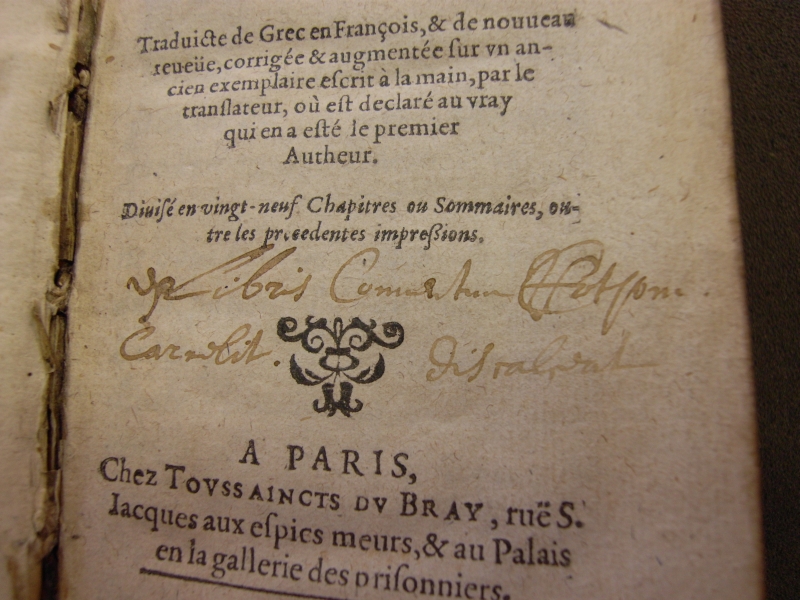 Traduicte de Grec en François, & de nouueau
reueüe, corrigée & augmentée ſur vn an-
cien exemplaire eſcrit à la main, par le
tranſlateur, où eſt declaré au vray
qui en a eſté le premier
Autheur.
Diuiſé en vingt-neuf Chapitres ou Sommaires, ou-
tre les precedentes impreßions.
Libris
Carmelit. discalceat
A PARIS,
Chez TOVSSAINCTS DV BRAY, ruë S.
Iacques aux eſpics meurs, & au Palais
en la gallerie des priſonniers.